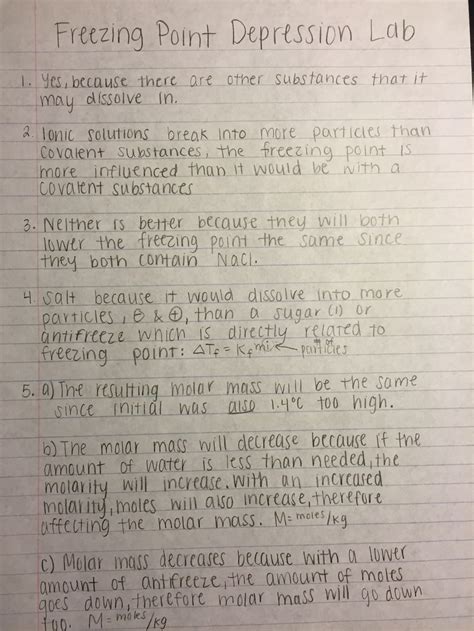 Freezing Point Depression Lab
1. Yes, because there are other substances that it
may dissolve in.
2. Ionic solutions break into more particles than
covalent substances, the freezing point is
more influenced than it would be with a
covalent substances
3. Neither is better because they will both
lower the freezing point the same since
they both contain NaCl.
4. Salt because it would dissolve into more
particles, ⊖ & ⊕, than a sugar (1) or
antifreeze which is directly related to
freezing point: ΔTf = Kf m i ← # of particles
5. a) The resulting molar mass will be the same
since initial was also 1.4°C too high.
b) The molar mass will decrease because if the
amount of water is less than needed, the
molarity will increase. With an increased
molarity, moles will also increase, therefore
affecting the molar mass. M = moles/kg
c) Molar mass decreases because with a lower
amount of antifreeze, the amount of moles
goes down, therefore molar mass will go down
too. M = moles/kg